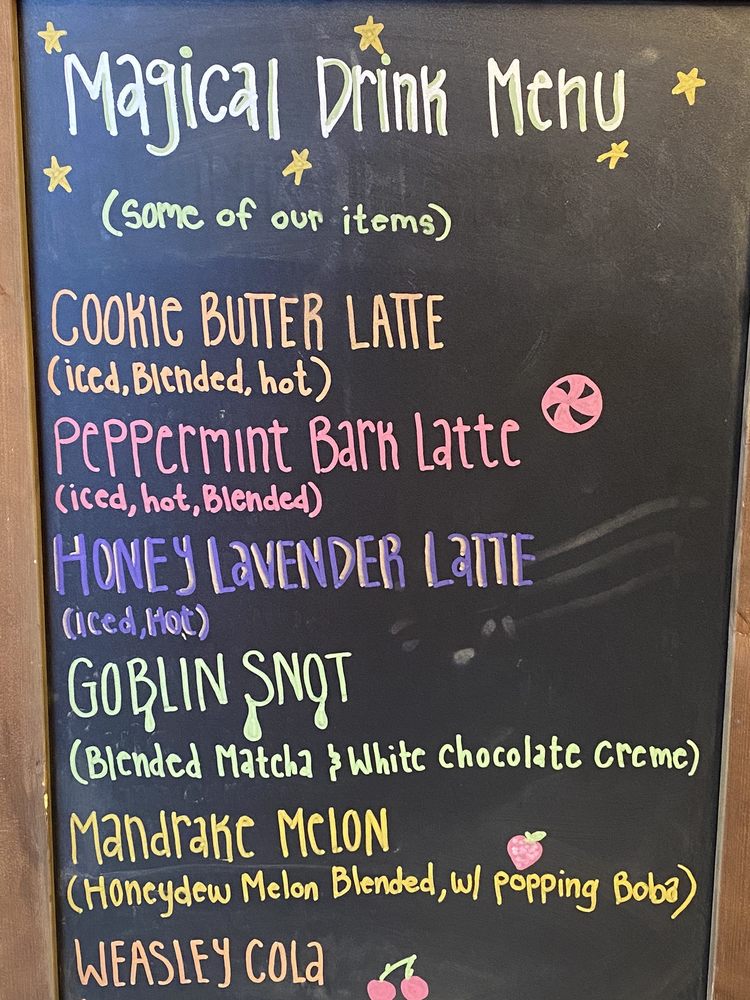 Magical Drink Menu
(some of our items)
COOKIE BUTTER LATTE
(iced, Blended, hot)
Peppermint Bark Latte
(iced, hot, Blended)
HONEY LAVENDER LATTE
(iced, Hot)
GOBLIN SNOT
(Blended Matcha & White chocolate Creme)
Mandrake MELON
(Honeydew Melon Blended, w/ popping Boba)
WEASLEY COLa